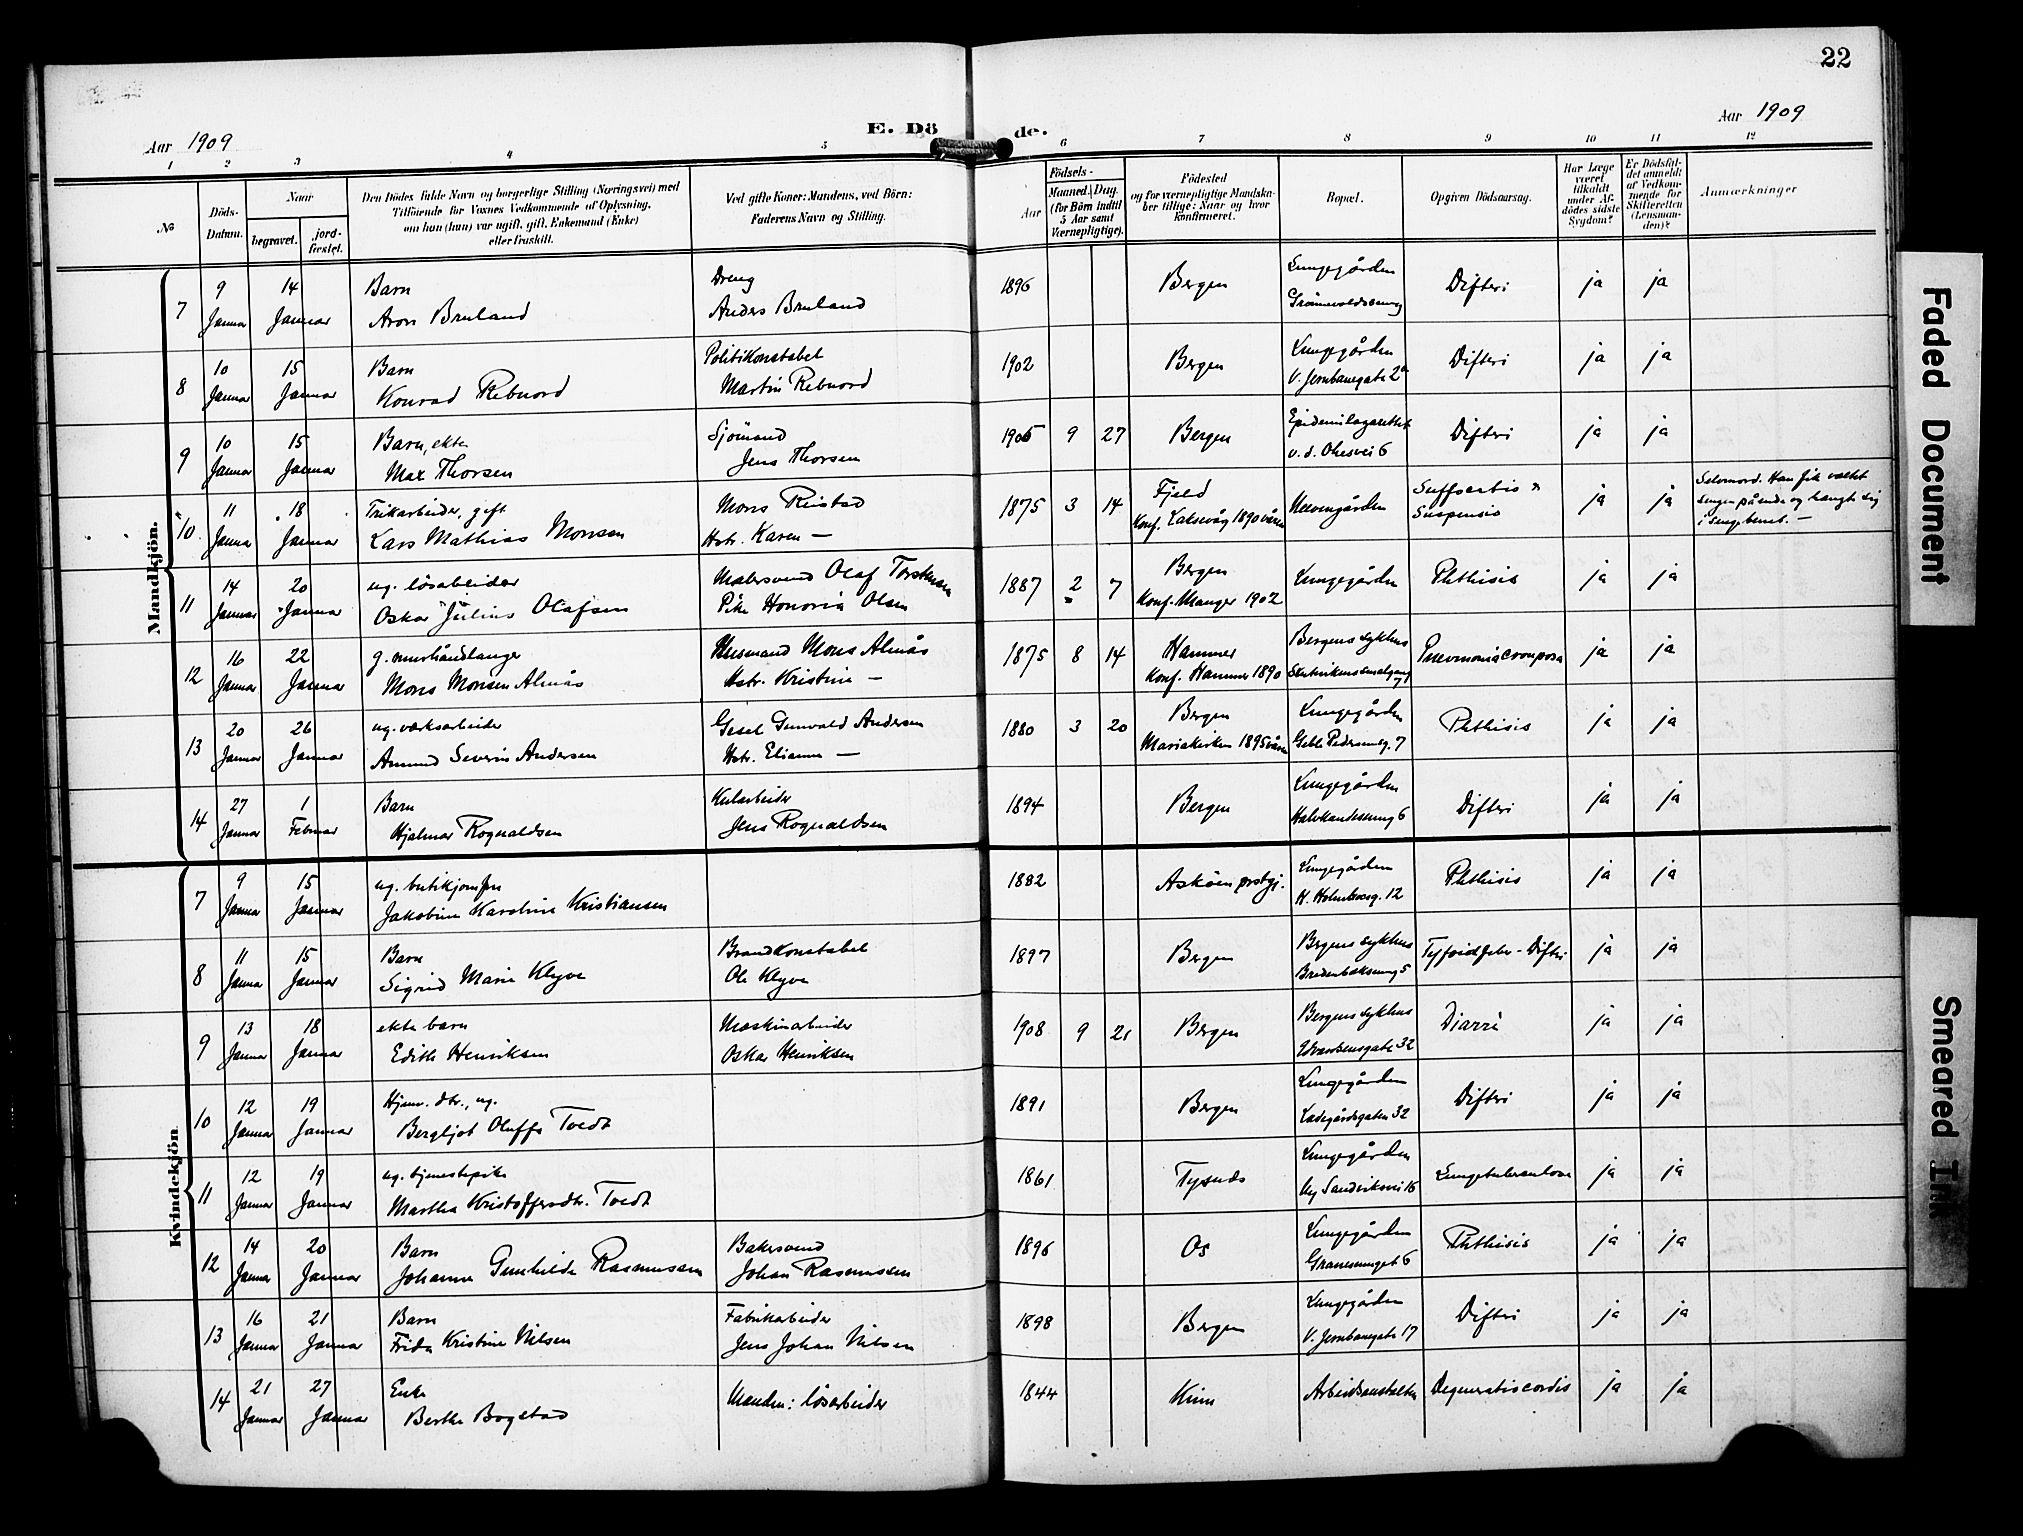 22
Aar 1909
E. Dö
de.
Aar 1909
1 2 3 4 5 6 7 8 9 10 11 12
№
Döds-
Datum.
Naar
begravet.
jord-
fæstet.
Den Dödes fulde Navn og borgerlige Stilling (Næringsvei) med
Tilföiende for Voxnes Vedkommende af Oplysning,
om han (hun) var ugift, gift, Enkemand (Enke)
eller fraskilt.
Ved gifte Koner: Mandens, ved Börn:
Faderens Navn og Stilling.
Födsels-
Aar
Maaned. Dag.
(for Börn indtil
5 Aar samt
Værnepligtige).
Födested
og for værnepligtige Mandska-
ber tillige: Naar og hvor
konfirmeret.
Bopæl.
Opgiven Dödsaarsag.
Har Læge
været
tilkaldt
under Af-
dödes sidste
Sygdom?
Er Dödsfal-
det anmeldt
af Vedkom-
mende for
Skifteretten
(Lensman-
den)?
Anmærkninger
Mandkjön.
7
9 Januar
14 Januar
Barn
Aron Bruland
Dreng
Anders Bruland
1896
Bergen
Lungegården
Difteri
ja
ja
8
10 Januar
15 Januar
Barn
Konrad Rebnord
Politikonstabel
Martin Rebnord
1902
Bergen
Lungegården
V. Jernbanegate 2a
Difteri
ja
ja
9
10 Januar
15 Januar
Barn, ekte
Max Thorsen
Sjömand
Jens Thorsen
1905 9 27
Bergen
Epidemilazarettet
Difteri
ja
ja
10
11 Januar
18 Januar
gift
Lars Mathias Monsen
Mons
Hstr. Karen —
1875 3 14
Fjeld
Konf. Laksevåg 1890 våren
Suspensio
ja
ja
Selvmord. Han fik væltet
sengen på ende og hængte sig
i sengebenet. —
11
14 Januar
20 Januar
ug. lösarbeider
Oskar Julius Olafsen
Malersvend Olaf
Pike Honoria Olsen
1887 2 7
Bergen
Konf. Manger 1902
Lungegården
Phthisis
ja
ja
12
16 Januar
22 Januar
g. murhåndlanger
Mons Monsen Almås
Husmand Mons Almås
Hstr. Kristine —
1875 8 14
Hammer
Konf. Hammer 1890
Bergens sykhus
Pneumonia crouposa
ja
ja
13
20 Januar
26 Januar
ug. verksarbeider
Amund Severin Andersen
Gesel Gunvald Andersen
Hstr. Elianne —
1880 3 20
Bergen
Mariakirken 1895 våren
Lungegården
Geble Pedersensg. 7
Phthisis
ja
ja
14
27 Januar
1 Februar
Barn
Hjalmar Rognaldsen
Kularbeider
Jens Rognaldsen
1894
Bergen
Lungegården
Difteri
ja
ja
Kvindekjön
7
9 Januar
15 Januar
ug. butikjomfru
Jakobine Karoline Kristiansen
1882
Asköen prstgj.
Lungegården
H. Holmboesg. 12
Phthisis
ja
ja
8
11 Januar
15 Januar
Barn
Sigrid Marie Klyve
Brandkonstabel
Ole Klyve
1897
Bergen
Bergens sykhus
Tyfoidfeber - Difteri
ja
ja
9
13 Januar
18 Januar
ekte barn
Edith Henriksen
Maskinarbeider
Oskar Henriksen
1908 9 21
Bergen
Bergens sykhus
Edvardsensgate 32
Diarré
ja
ja
10
12 Januar
19 Januar
Hjem. dtr., ug.
Bergljot Oluffa Tvedt
1891
Bergen
Lungegården
Ladegårdsgaten 32
Difteri
ja
ja
11
12 Januar
19 Januar
ug. tjenestepike
Martha Kristoffersdtr. Tvedt
1861
Tysnes
Lungegården
Ny Sandviksvei 16
Lungetuberculose
ja
ja
12
14 Januar
20 Januar
Barn
Johanne Gunhilde Rasmussen
Bakersvend
Johan Rasmussen
1896
Os
Lungegården
Phthisis
ja
ja
13
16 Januar
21 Januar
Barn
Frida Kristine Nilsen
Fabrikarbeider
Jens Johan Nilsen
1898
Bergen
Lungegården
V. Jernbanegate 17
Difteri
ja
ja
14
21 Januar
27 Januar
Enke
Berthe Bogstad
Manden: lösarbeider
1844
Kinn
Arbeidsanstalten
Degeneratio cordis
ja
ja
Faded Document
Smeared Ink